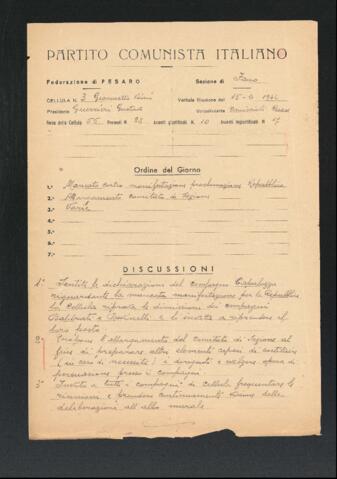 PARTITO COMUNISTA ITALIANO
Federazione di PESARO Sezione di Fano
CELLULA N. 3 Giannetto Dini Verbale Riunione del 15-6 1946
Presidente Guerrieri Verbalizzante
Forza della Cellula 55 Presenti N. 28 Assenti giustificati N. 10 Assenti ingiustificati N. 17
Ordine del Giorno
1.° Mancata manifestazione proclamazione Repubblica
2.° Allargamento comitato di sezione
3.° Varie
4.°
5.°
6.°
7.°
DISCUSSIONI
1° Sentite le dichiarazioni del compagno
riguardante la mancata manifestazione per la Repubblica
la Cellula respinge le dimissioni dei compagni
e li invita a riprendere il
loro posto.
2° l'allargamento del comitato di Sezione al
fine di preparare altri elementi capaci di sostituire
(in casi di necessità) i dirigenti e svolgere opera di
persuasione presso i compagni.
3° Invito a tutti i compagni di cellula frequentare le
riunioni e prendere continuamente visione delle
deliberazioni all'albo murale.